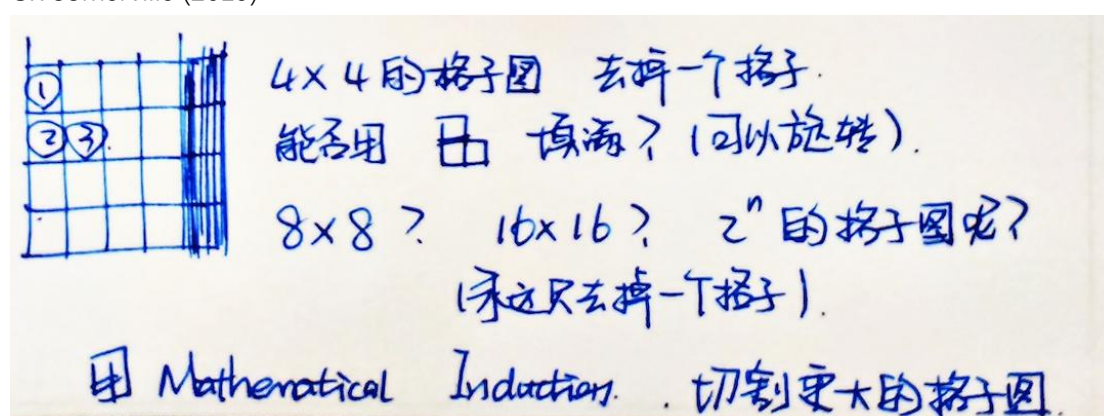 ① 4×4的格子图 去掉一个格子.
②③ 能否用 填满?(可以旋转).
8×8? 16×16? 2ⁿ的格子图呢?
(永远只去掉一个格子).
用 Mathematical Induction. 切割更大的格子图.